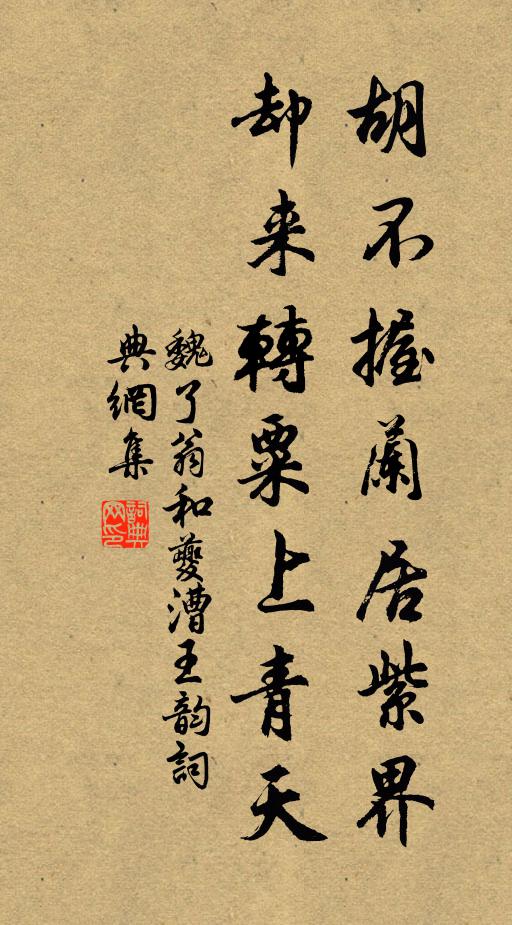 胡不握蘭居紫界
却来轉粟上青天
魏了翁和夔漕王韵詞
典網集
詞典網印